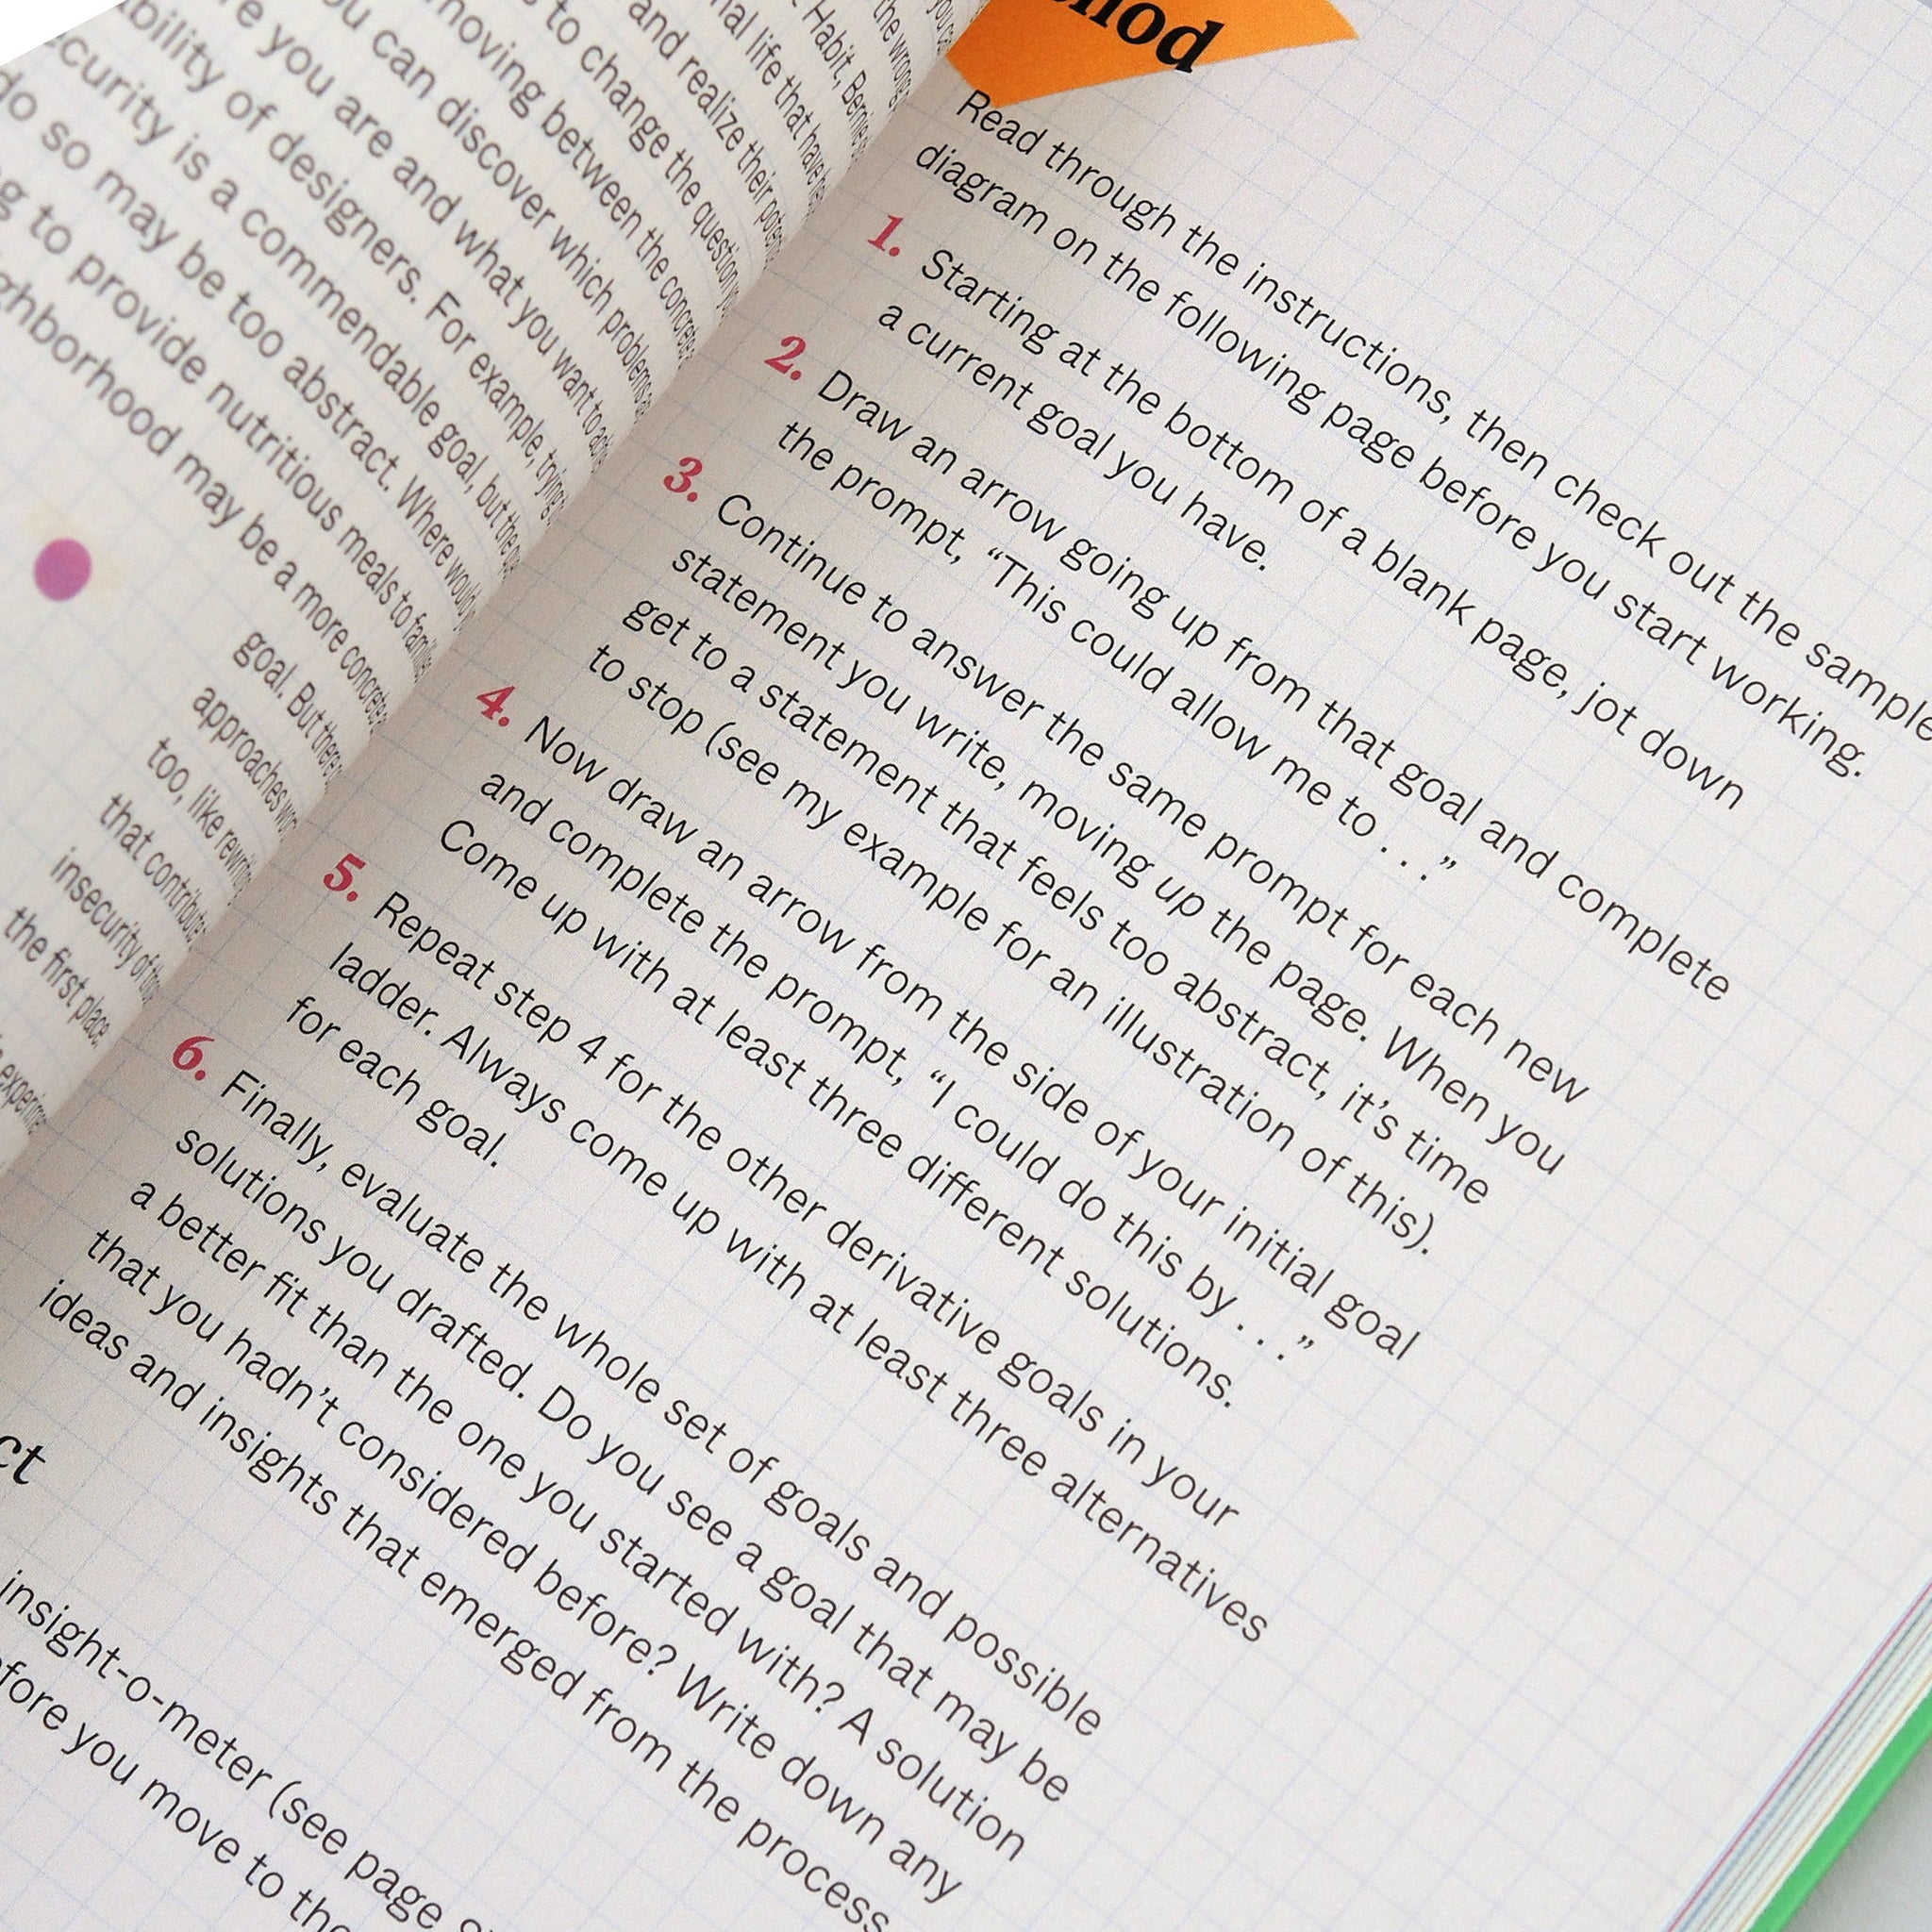 you are and what you want to
you can discover which problems
moving between the concrete
to change the question
and realize their
life that have
Habit,
the wrong
bility of designers. For example, trying
curity is a commendable goal, but the
do so may be too abstract. Where would
to provide nutritious meals to families
ghborhood may be a more concrete
goal. But
approaches
too, like
that contribute
insecurity of
the first place.
ct
insight-o-meter (see page
fore you move to the
Read through the instructions, then check out the sample
diagram on the following page before you start working.
1. Starting at the bottom of a blank page, jot down
a current goal you have.
2. Draw an arrow going up from that goal and complete
the prompt, “This could allow me to . . .”
3. Continue to answer the same prompt for each new
statement you write, moving up the page. When you
get to a statement that feels too abstract, it’s time
to stop (see my example for an illustration of this).
4. Now draw an arrow from the side of your initial goal
and complete the prompt, “I could do this by . . .”
Come up with at least three different solutions.
5. Repeat step 4 for the other derivative goals in your
ladder. Always come up with at least three alternatives
for each goal.
6. Finally, evaluate the whole set of goals and possible
solutions you drafted. Do you see a goal that may be
a better fit than the one you started with? A solution
that you hadn’t considered before? Write down any
ideas and insights that emerged from the process